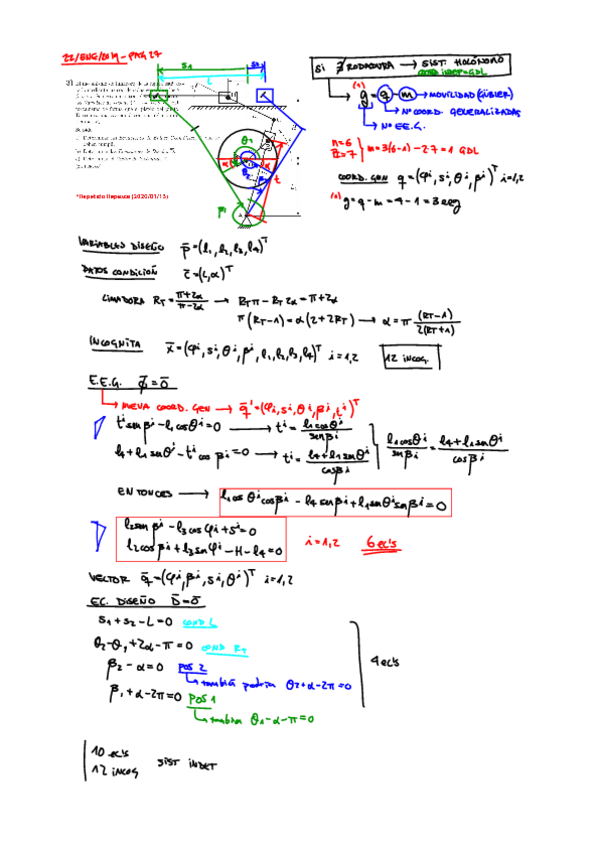 22/ENE/2019 - PAG 27
si ∄ RODADURA → SIST. HOLÓNOMO
COORD INDEP = GDL
(*) g = q - m → MOVILIDAD (GÜBLER)
Nº COORD. GENERALIZADAS
Nº EE.G.
n=6
m=3(6-1)-2·7=1 GDL
COORD. GEN q=(φi, si, θi, βi)ᵀ i=1,2
(*) g=q-m=4-1=3 eeg
*Repetido
(2020/01/13)
VARIABLES DISEÑO p̄=(l₁, l₂, l₃, l₄)ᵀ
DATOS CONDICIÓN c̄=(L,α)ᵀ
LIMADORA RT = π+2α / π-2α → RTπ - RT2α = π+2α
π(RT-1) = α(2+2RT) → α = π (RT-1) / 2(RT+1)
INCOGNITA x̄=(φi, si, θi, βi, l₁, l₂, l₃, l₄)ᵀ i=1,2 12 INCOG.
E.E.G. φ̄=0̄
NUEVA COORD. GEN → q̄'=(φi, si, θi, βi, ti)ᵀ
tⁱ sen βⁱ - l₁cos θⁱ = 0 → tⁱ = l₁cosθⁱ / senβⁱ
l₄ + l₁ senθⁱ - tⁱ cos βⁱ = 0 → tⁱ = l₄+l₁senθⁱ / cosβⁱ
l₁cosθⁱ / senβⁱ = l₄+l₁senθⁱ / cosβⁱ
ENTONCES → l₁cos θⁱ cosβⁱ - l₄ senβⁱ + l₁senθⁱ senβⁱ = 0
l₂sen βⁱ - l₃cos φⁱ + sⁱ = 0
l₂cos βⁱ + l₃sen φⁱ - H - l₄ = 0
i=1,2 6 ec's
VECTOR q̄=(φⁱ, βⁱ, sⁱ, θⁱ)ᵀ i=1,2
EC. DISEÑO D̄=0̄
s₁+s₂-L=0 COND L
θ₂-θ₁+2α-π=0 COND RT
β₂-α=0 POS 2
también podría θ₂+α-2π=0
β₁+α-2π=0 POS 1
también θ₁-α-π=0
4 ec's
10 ec's
12 incog
SIST INDET